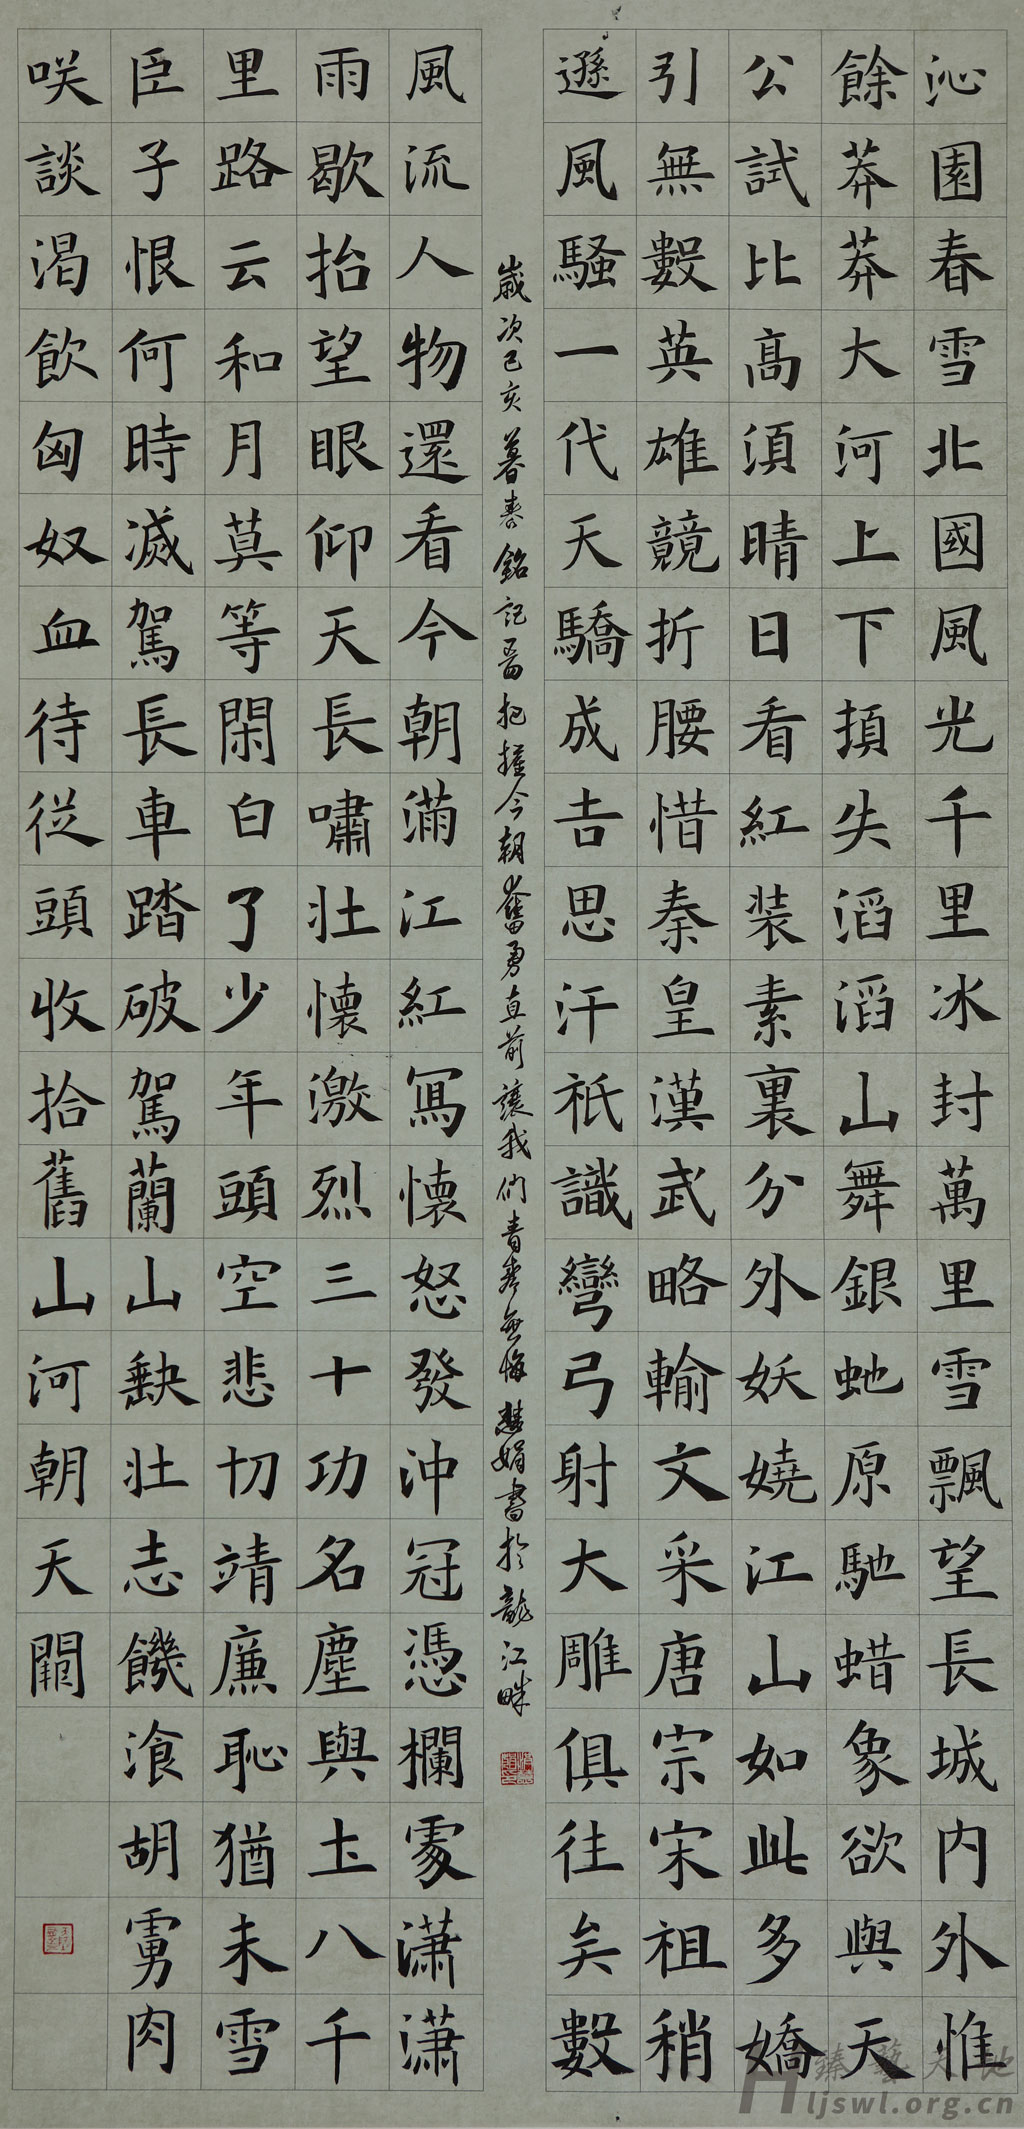 沁園春雪北國風光千里冰封萬里雪飄望長城内外惟
餘莽莽大河上下頓失滔滔山舞銀虵原馳蜡象欲與天
公試比高須晴日看紅装素裏分外妖嬈江山如此多嬌
引無數英雄競折腰惜秦皇漢武略輸文采唐宗宋祖稍
遜風騷一代天驕成吉思汗祇識彎弓射大雕俱往矣數
歲次己亥暮春銘記把握今朝奮勇直前讓我們青春無悔慧娟書於龍江畔
風流人物還看今朝滿江紅寫懷怒發沖冠憑欄處潇潇
雨歇抬望眼仰天長嘯壯懷激烈三十功名塵與土八千
里路云和月莫等閑白了少年頭空悲切靖廉恥猶未雪
臣子恨何時滅駕長車踏破駕蘭山缺壯志饑飡胡虜肉
咲談渴飲匈奴血待從頭收拾舊山河朝天闕
臻藝天地
ljswl.org.cn